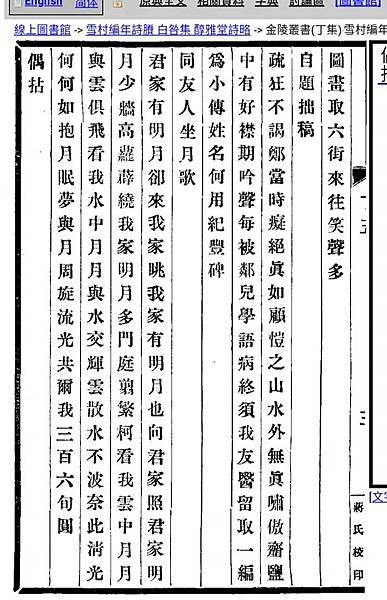 English 简体 原典全文 相關資料 字典 討論區 [圖書館]
線上圖書館 -> 雪村編年詩賸 白咎集 醇雅堂詩略 -> 金陵叢書(丁集) 雪村編年
圖畫取六街來往笑聲多
自題拙稿
疏狂不謁鄭當時癡絕眞如顧愷之山水外無眞嘯傲齋鹽
中有好襟期吟聲每被鄰兒學語病終須我友醫留取一編
爲小傳姓名何用紀豐碑
同友人坐月歌
君家有明月卻來我家眺我家有明月也向君家照君家明
月少牆高蘿薜繞我家明月多門庭翦繁柯看我雲中月月
與雲俱飛看我水中月月與水交輝雲散水不波奈此淸光
何何如抱月眠夢與月周旋流光共爾我三百六旬圓
偶拈
蔣氏校印